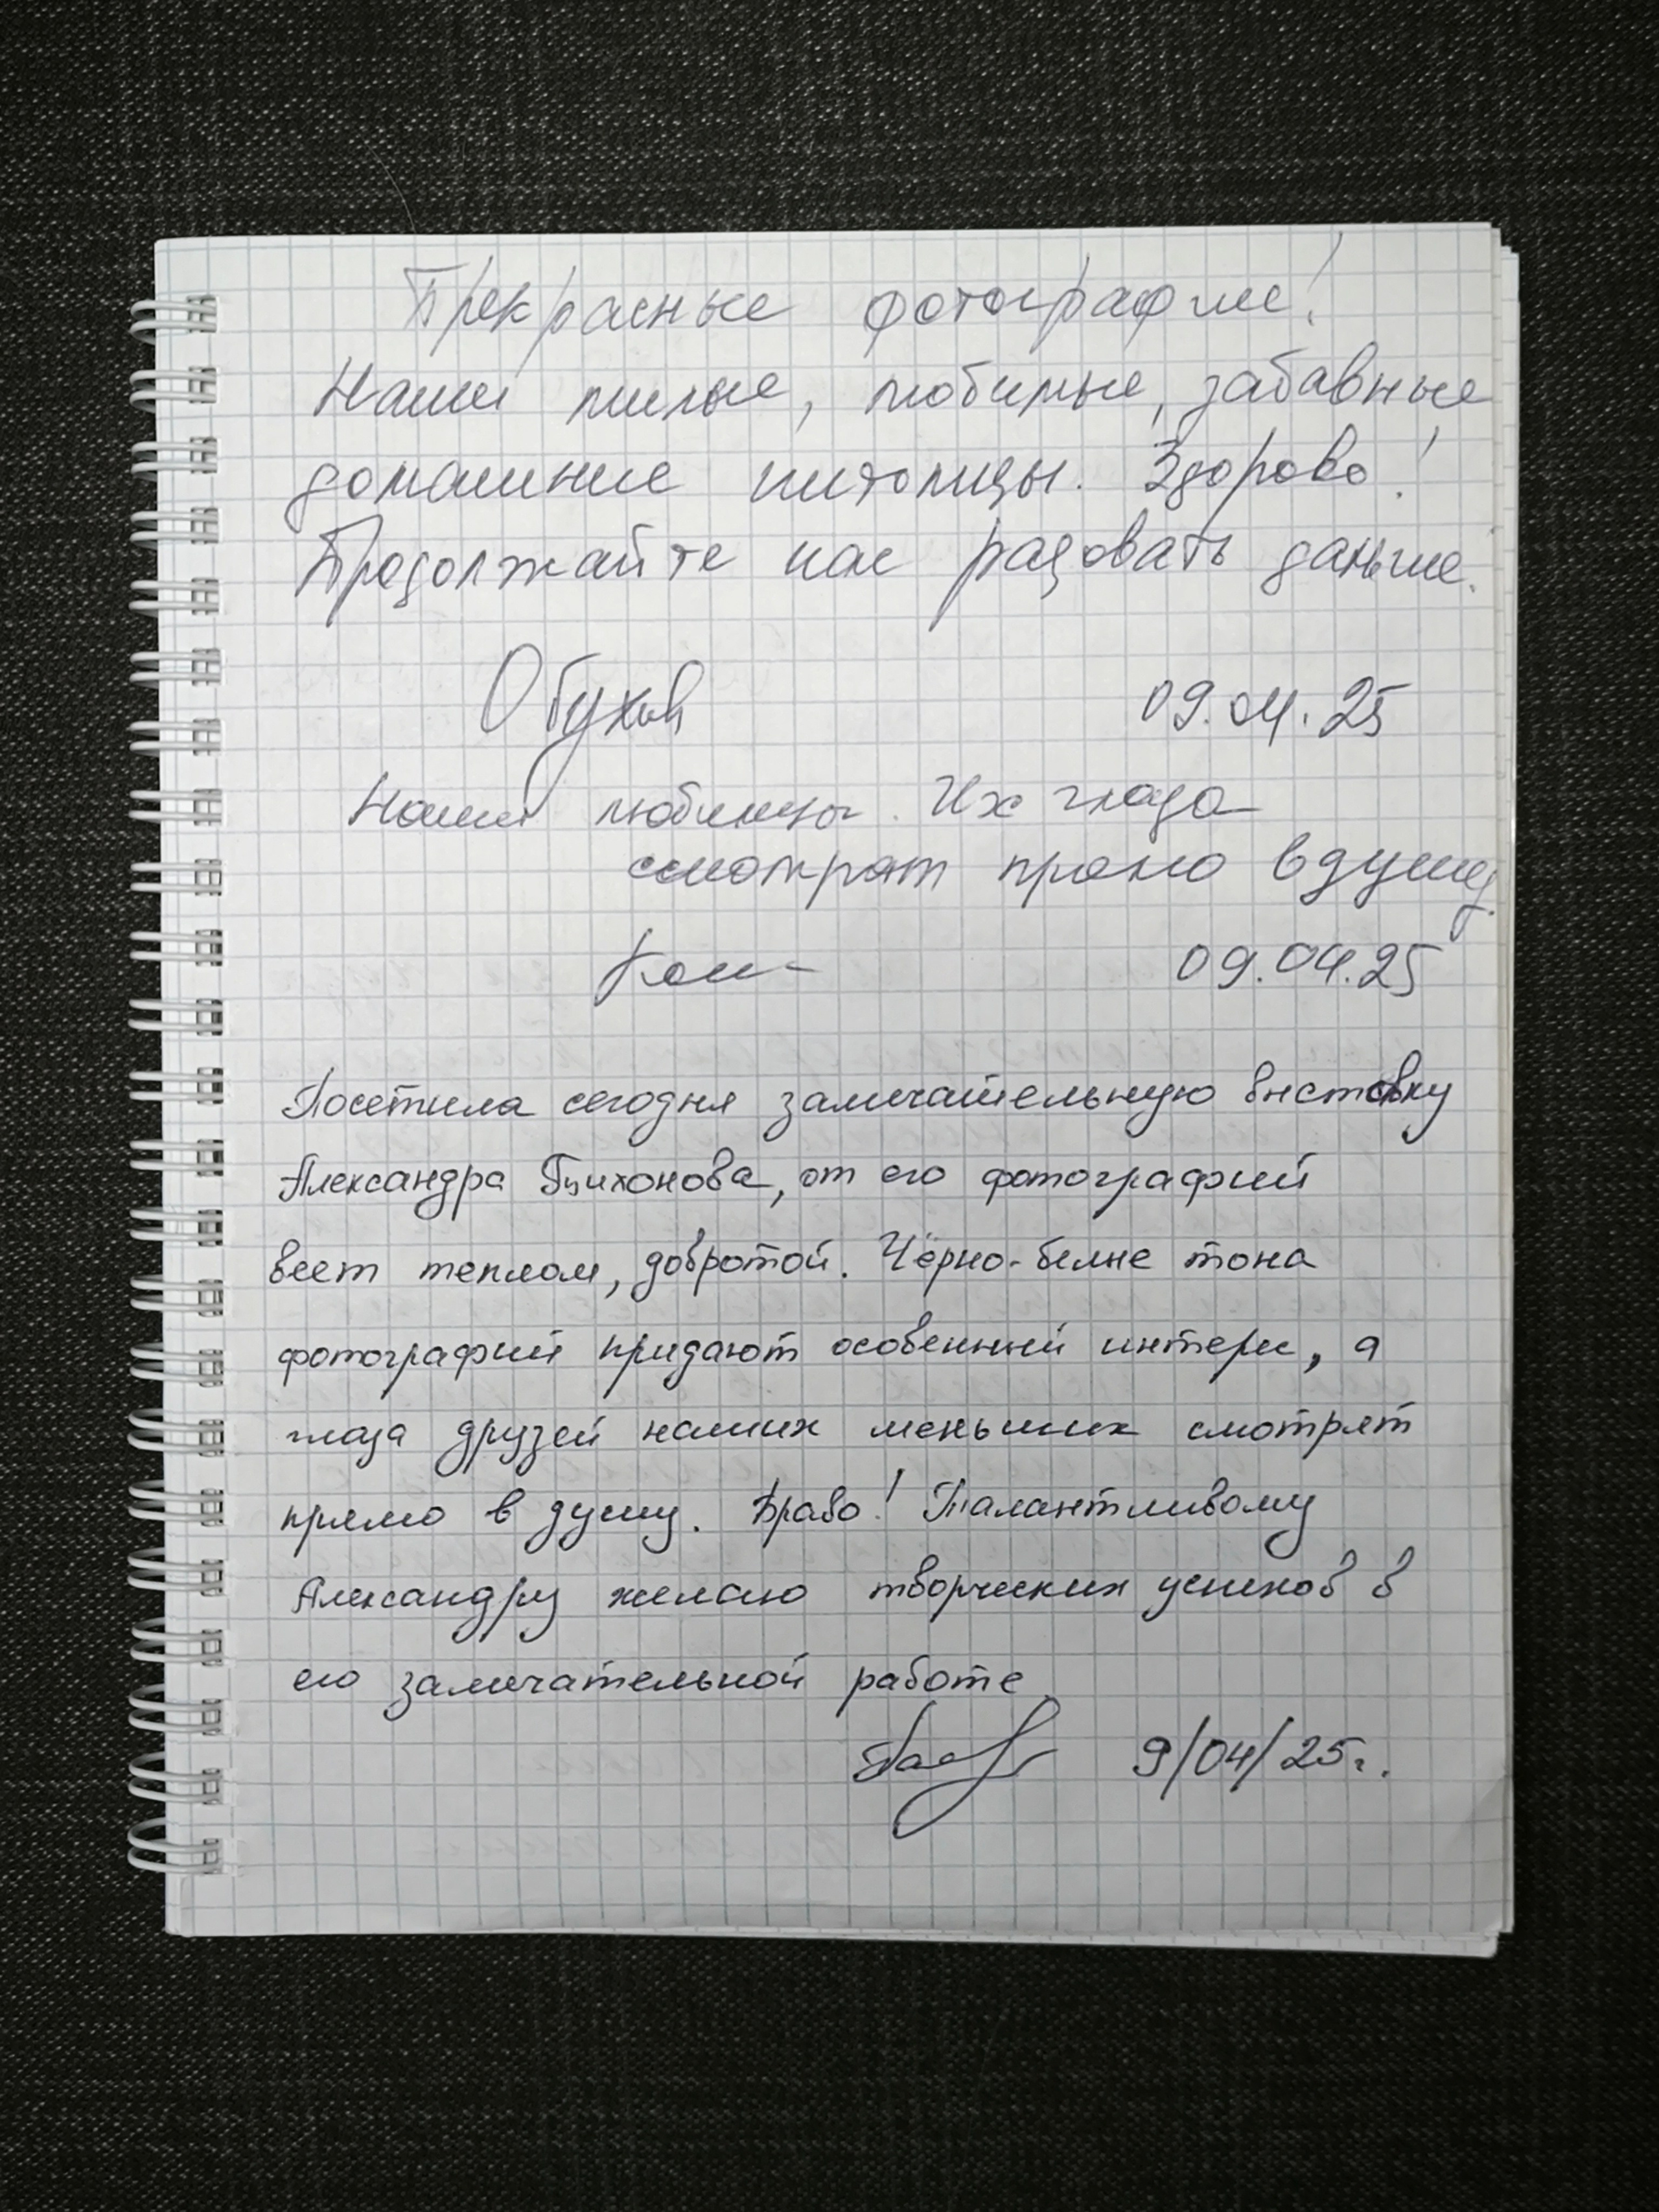 Прекрасные фотографии!
Наши милые, любимые, забавные
домашние питомцы. Здорово!
Продолжайте нас радовать дальше.
Обухов 09.04.25
Наши любимцы. Их глаза
смотрят прямо в душу.
09.04.25
Посетила сегодня замечательную выставку
Александра Тихонова, от его фотографий
веет теплом, добротой. Чёрно-белые тона
фотографий придают особенный интерес, а
глаза друзей наших меньших смотрят
прямо в душу. Браво! Талантливому
Александру желаю творческих успехов в
его замечательной работе
9/04/25г.